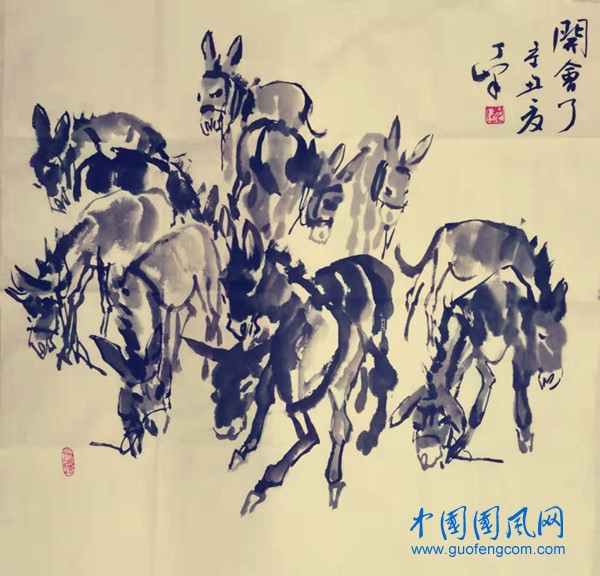 開會了
辛丑夏
丁峰
中國國风网
www.guofengcom.com